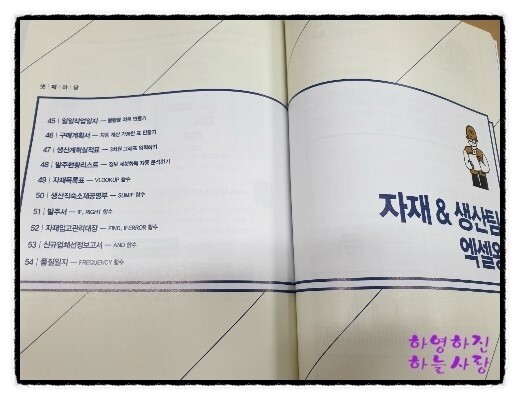 넷 | 째 | 마 | 당
45 | 일일작업일지 – 불량률 차트 만들기
46 | 구매계획서 – 자동 계산 가능한 표 만들기
47 | 생산계획실적표 –
48 | 발주현황리스트 –
49 | 자재목록표 – VLOOKUP 함수
50 | 생산직숙소제공명부 – SUMIF 함수
51 | 발주서 – IF, RIGHT 함수
52 | 자재입고관리대장 – FIND, IFERROR 함수
53 | 신규업체선정보고서 – AND 함수
54 | 품질일지 – FREQUENCY 함수
자재 & 생산팀
엑셀
하영하진
하늘사랑